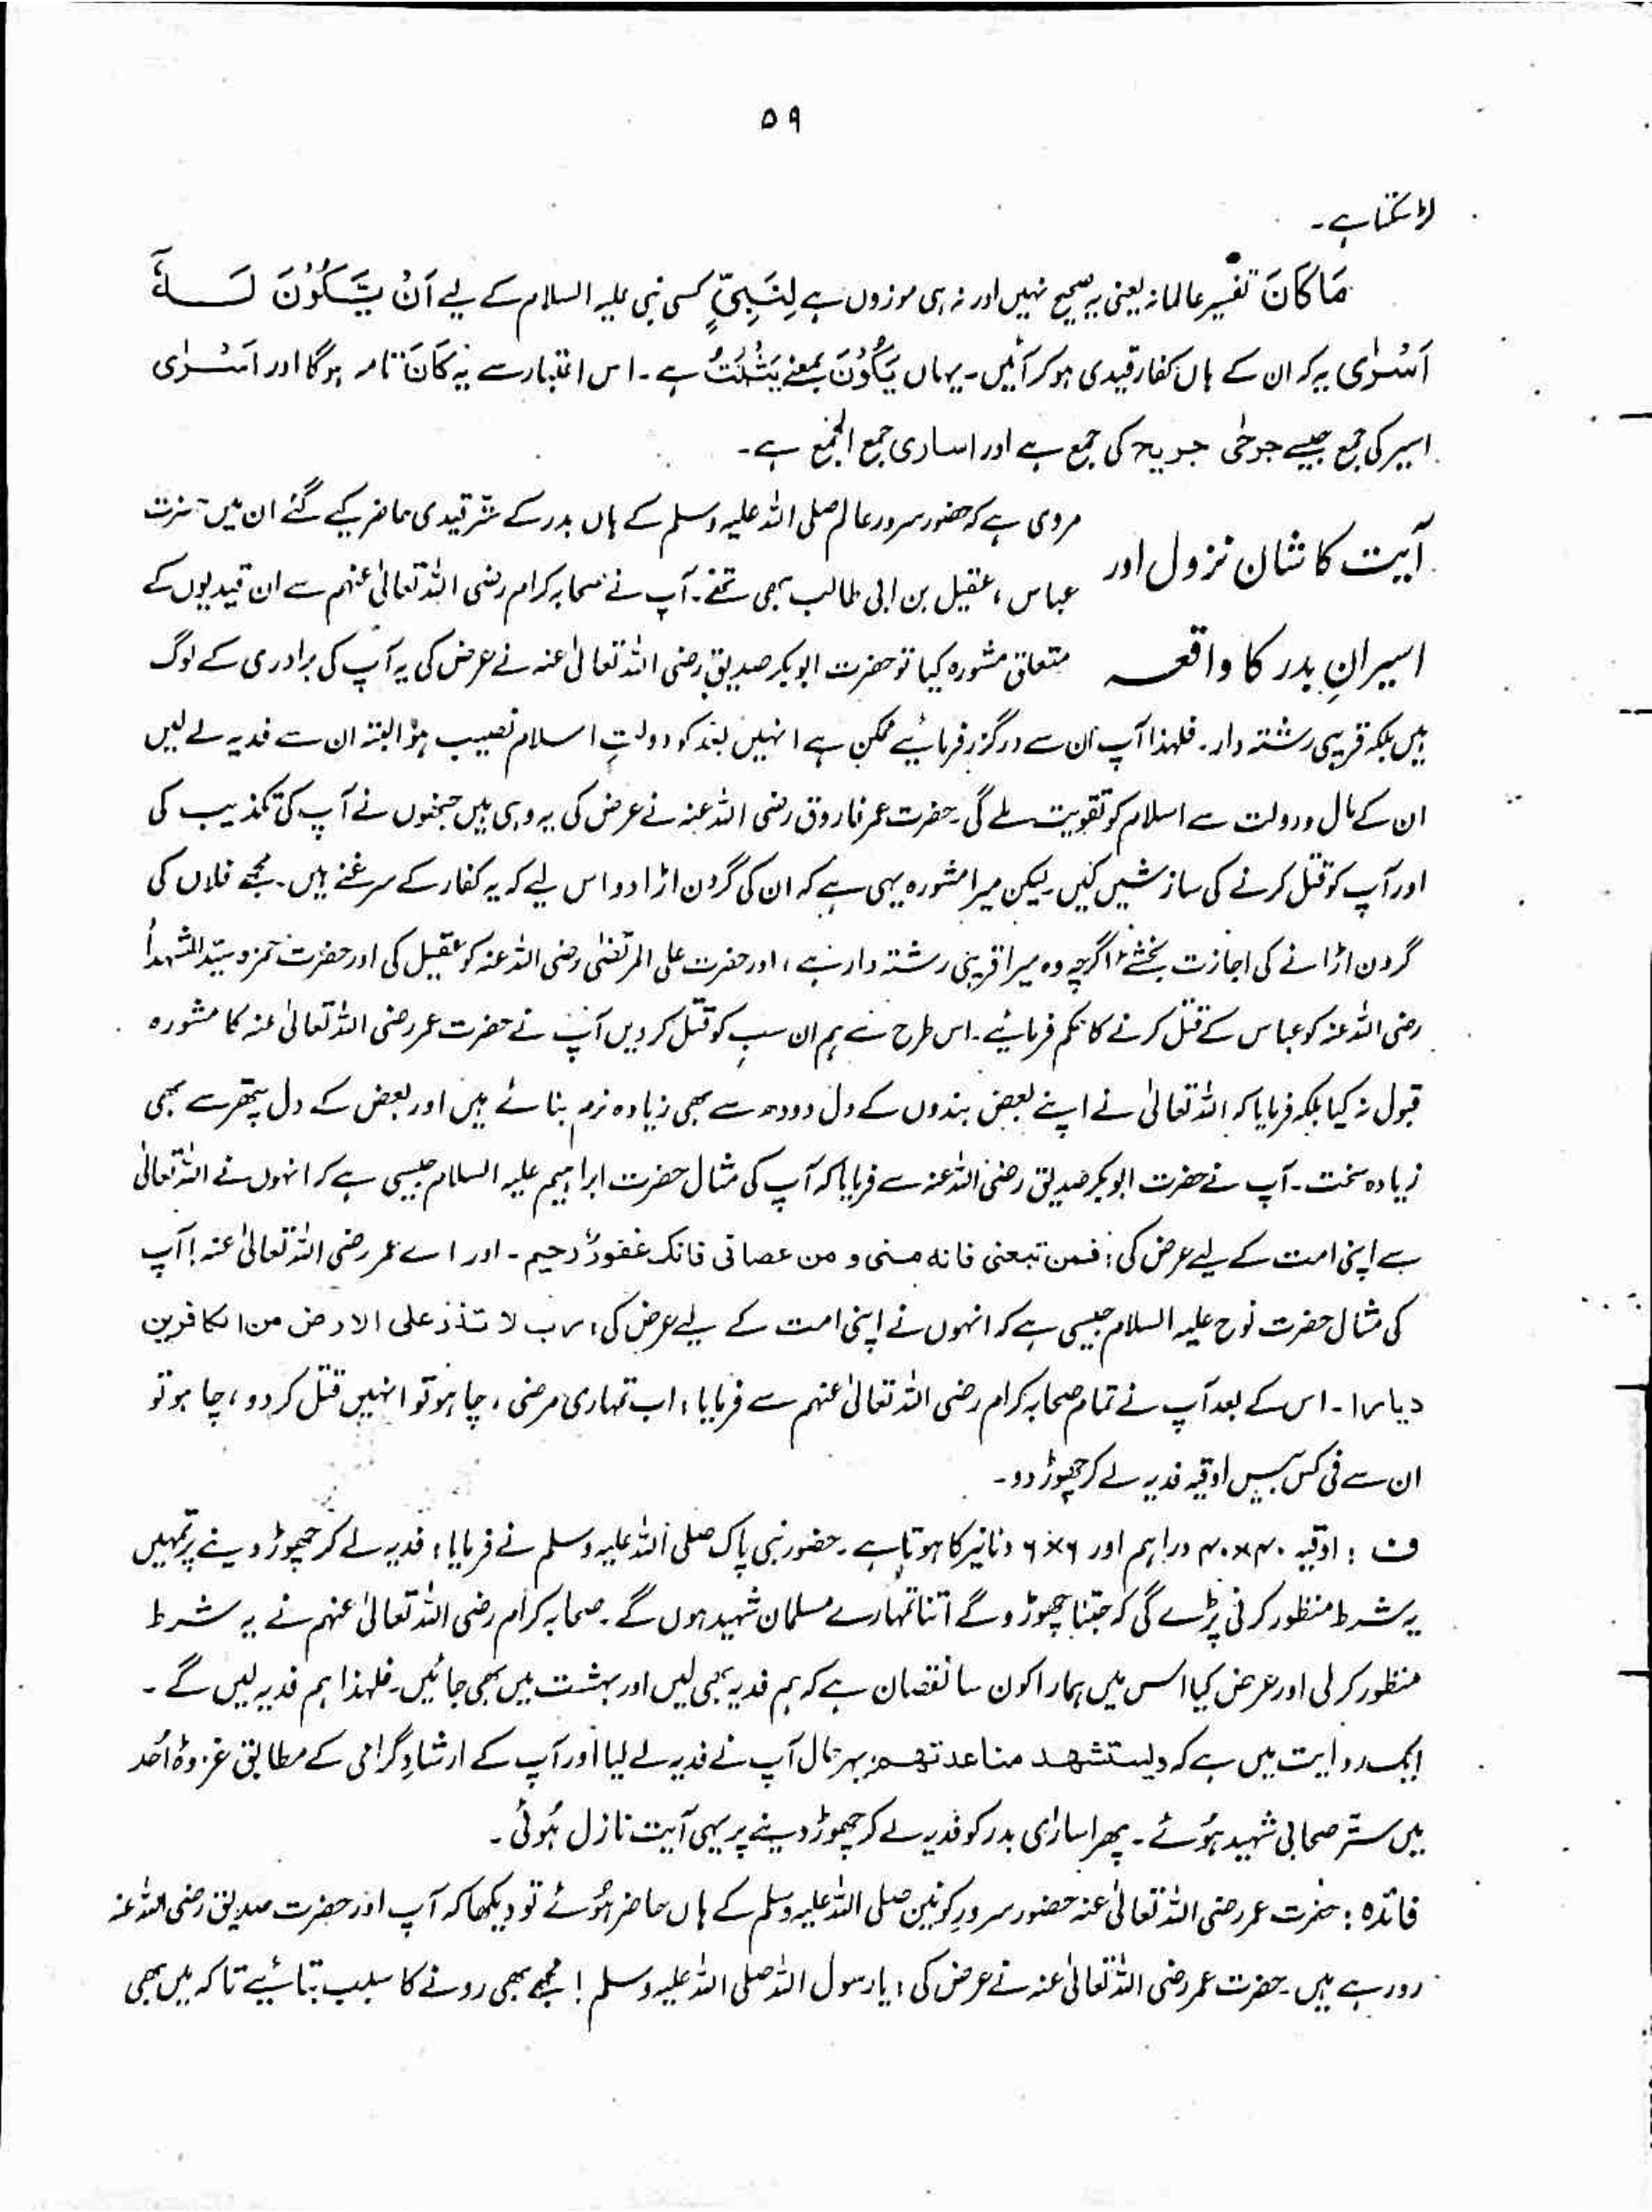 ۵۹
لاسکتا ہے۔
مَا كَانَ تفسیر عالمانہ یعنی یہ صحیح نہیں اور نہ ہی موزوں ہے لِنَبِيٍّ کسی نبی علیہ السلام کے لیے اَنْ يَّكُوْنَ لَهٗٓ
اَسْرٰى یہ کہ ان کے ہاں کفار قیدی ہو کر آئیں۔ یہاں یَكُوْنَ بمعنے یَثْبُتُ ہے۔ اس اعتبار سے یہ کَانَ تامہ ہوگا اور اَسْرٰى
اسیر کی جمع جیسے جرحٰی جریح کی جمع ہے اور اساری جمع الجمع ہے۔
آیت کا شان نزول اور
اسیرانِ بدر کا واقعہ
مروی ہے کہ حضور سرور عالم صلی اللہ علیہ وسلم کے ہاں بدر کے ستر قیدی حاضر کیے گئے ان میں حضرت
عباس، عقیل بن ابی طالب بھی تھے۔ آپ نے صحابہ کرام رضی اللہ تعالیٰ عنہم سے ان قیدیوں کے
متعلق مشورہ کیا تو حضرت ابوبکر صدیق رضی اللہ تعالیٰ عنہ نے عرض کی یہ آپ کی برادری کے لوگ
ہیں بلکہ قریبی رشتہ دار۔ فلہذا آپ ان سے درگزر فرمائیے ممکن ہے انہیں بعد کو دولتِ اسلام نصیب ہو البتہ ان سے فدیہ لے لیں
ان کے مال و دولت سے اسلام کو تقویت ملے گی۔ حضرت عمر فاروق رضی اللہ عنہ نے عرض کی یہ وہی ہیں جنھوں نے آپ کی تکذیب کی
اور آپ کو قتل کرنے کی سازشیں کیں لیکن میرا مشورہ یہی ہے کہ ان کی گردن اڑا دو اس لیے کہ یہ کفار کے سرغنے ہیں۔ مجھے فلاں کی
گردن اڑانے کی اجازت بخشئے اگرچہ وہ میرا قریبی رشتہ دار ہے، اور حضرت علی المرتضٰی رضی اللہ عنہ کو عقیل کی اور حضرت حمزہ سیّد الشہدأ
رضی اللہ عنہ کو عباس کے قتل کرنے کا حکم فرمائیے۔ اس طرح سے ہم ان سب کو قتل کر دیں آپ نے حضرت عمر رضی اللہ تعالیٰ عنہ کا مشورہ
قبول نہ کیا بلکہ فرمایا کہ اللہ تعالیٰ نے اپنے بعض بندوں کے دل دودھ سے بھی زیادہ نرم بنائے ہیں اور بعض کے دل پتھر سے بھی
زیادہ سخت۔ آپ نے حضرت ابوبکر صدیق رضی اللہ عنہ سے فرمایا کہ آپ کی مثال حضرت ابراہیم علیہ السلام جیسی ہے کہ انہوں نے اللہ تعالیٰ
سے اپنی امت کے لیے عرض کی: فمن تبعنی فانه منی و من عصانی فانک غفورٌ رحیم۔ اور اے عمر رضی اللہ تعالیٰ عنہ! آپ
کی مثال حضرت نوح علیہ السلام جیسی ہے کہ انہوں نے اپنی امت کے لیے عرض کی: رب لا تذذ علی الارض من الکافرین
دیارا۔ اس کے بعد آپ نے تمام صحابہ کرام رضی اللہ تعالیٰ عنہم سے فرمایا: اب تمہاری مرضی، چاہو تو انہیں قتل کر دو، چاہو تو
ان سے فی کس بیس اوقیہ فدیہ لے کر چھوڑ دو۔
ف: اوقیہ ۴۰×۴۰ دراہم اور ۶×۶ دنانیر کا ہوتا ہے۔ حضور نبی پاک صلی اللہ علیہ وسلم نے فرمایا: فدیہ لے کر چھوڑ دینے پر تمہیں
یہ شرط منظور کرنی پڑے گی کہ جتنا چھوڑو گے اتنا تمہارے مسلمان شہید ہوں گے۔ صحابہ کرام رضی اللہ تعالیٰ عنہم نے یہ شرط
منظور کر لی اور عرض کیا اس میں ہمارا کون سا نقصان ہے کہ ہم فدیہ بھی لیں اور بہشت میں بھی جائیں۔ فلہذا ہم فدیہ لیں گے۔
ایک روایت میں ہے کہ ولیستشهد منا عدتهم بہرحال آپ نے فدیہ لے لیا اور آپ کے ارشادِ گرامی کے مطابق غزوۂ اُحد
میں ستّر صحابی شہید ہوُئے۔ پھر اسارٰی بدر کو فدیہ لے کر چھوڑ دینے پر یہی آیت نازل ہُوئی۔
فائدہ: حضرت عمر رضی اللہ تعالیٰ عنہ حضور سرورِ کونین صلی اللہ علیہ وسلم کے ہاں حاضر ہُوئے تو دیکھا کہ آپ اور حضرت صدیق رضی اللہ عنہ
رو رہے ہیں۔ حضرت عمر رضی اللہ تعالیٰ عنہ نے عرض کی: یا رسول اللہ صلی اللہ علیہ وسلم! مجھے بھی رونے کا سبب بتائیے تاکہ میں بھی